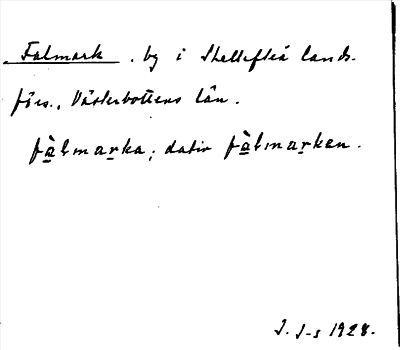 Falmark, by i Skellefteå lands-
förs., Västerbottens län.
fàlmarka; dativ fàlmarken.
J. J-s 1928.